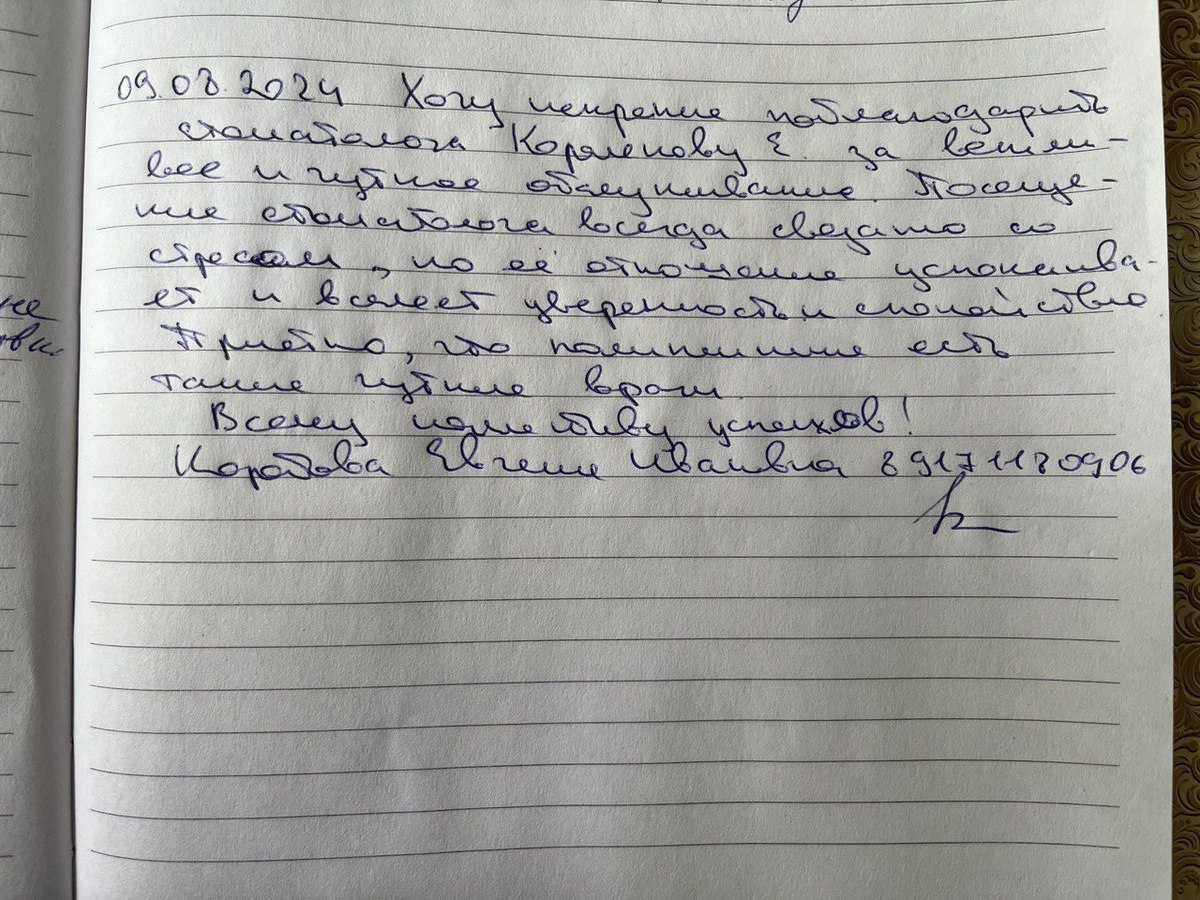 09.08.2024 Хочу искренне поблагодарить
стоматолога Корленову Е. за вежли-
вое и чуткое обслуживание. Посеще-
ние стоматолога всегда связано со
стрессом, но её отношение успокаива-
ет и вселяет уверенность и спокойствие
Приятно, что поликлинике есть
такие чуткие врачи
Всему коллективу успехов!
Коротова Евгения Ивановна 89171180906
не